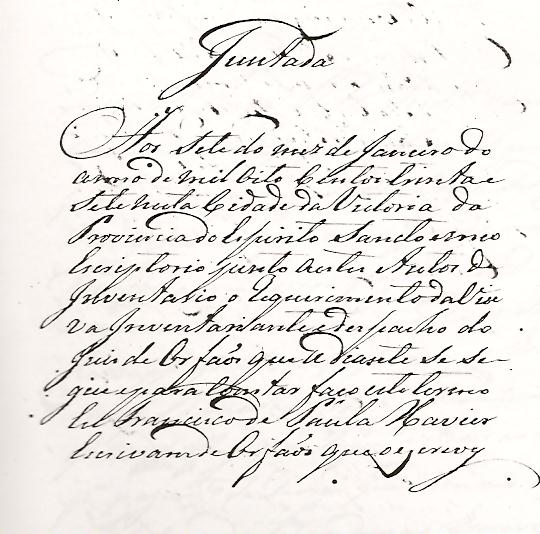 Juntada
Aos sete do mez de Janeiro do
anno de mil oito Centos trinta e
sete nesta Cidade da Victoria da
Provincia do Espirito Sancto em meo
Escriptorio junto a estes Autos de
Inventario o Requerimento da Viu
va Inventariante e despacho do
Juis de Orfaõs que a diante se se-
gue e para Constar faço este termo
Eu Francisco de Paula Xavier
Escrivam de Orfaõs que o escrevy